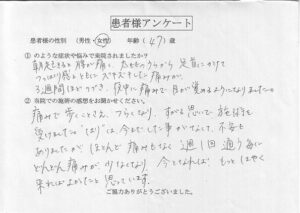 患者様アンケート
患者様の性別 (男性・女性) 年齢(47)歳
① どのような症状や悩みで来院されましたか?
朝起きると腰が痛い、太もものウラから足首にかけて
つっぱり感とともにズキズキした痛みが
3週間ほどつづき、夜中に痛みで目が覚めるようになりました。
② 当院での施術の感想をお聞かせください。
痛みで歩くことも、つらくなり、わがを思いで施術を
受けました。"はり"は今までした事がなくて、不安も
ありましたが ほとんど痛みもなく 週1回通う毎に
どんどん痛みが少なくなり、今となれば もっとはやく
来ればよかったと思っています。
ご協力ありがとうございました。